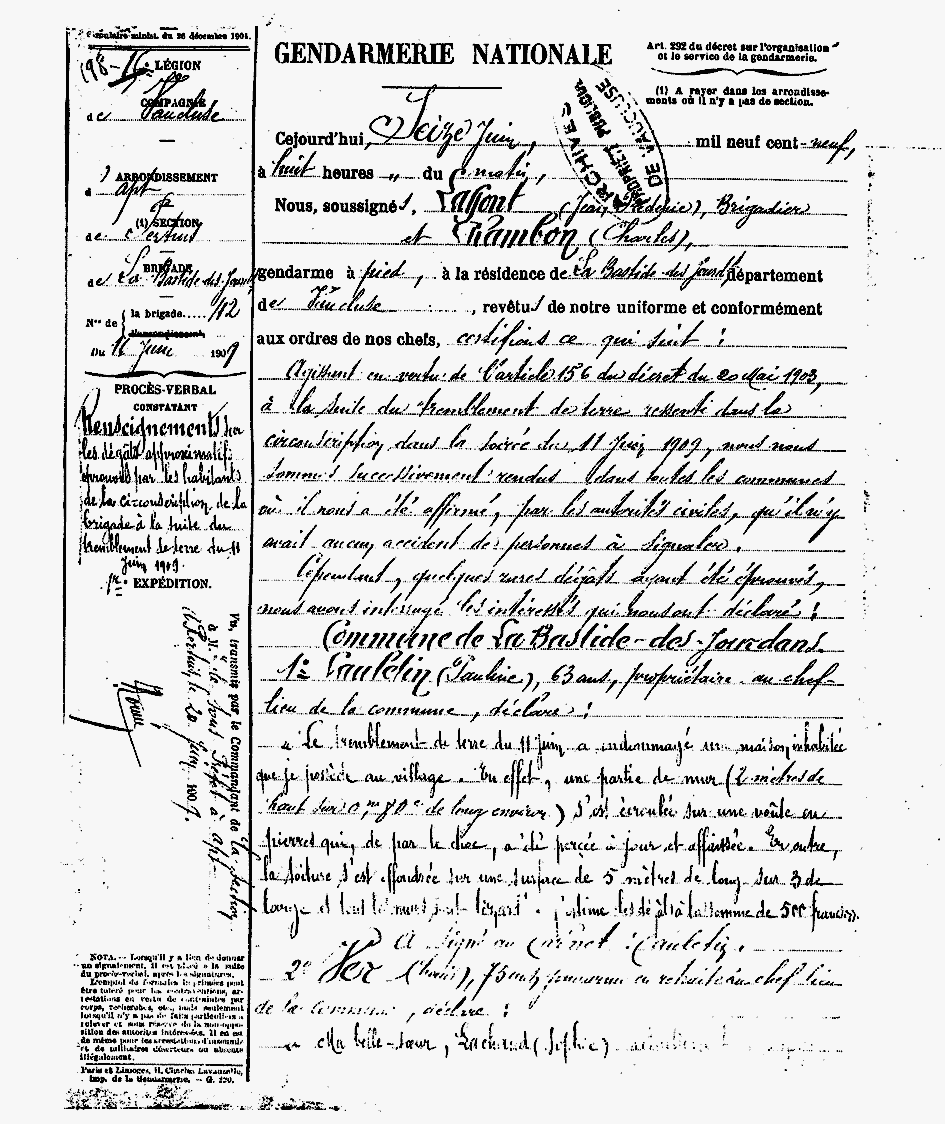 Circulaire minist. du 26 décembre 1901.
15e LÉGION
COMPAGNIE
de Vaucluse
ARRONDISSEMENT
d'apt
(1) SECTION
de Pertuis
BRIGADE
de La Bastide-des-Jourd
Nos de { la brigade..... 42
l'arrondissement
Du 16 Juin 1909
PROCÈS-VERBAL
CONSTATANT
Renseignements sur
les dégâts approximatifs
éprouvés par les habitants
de la circonscription de la
brigade à la suite du
tremblement de terre du 11
Juin 1909.
1re EXPÉDITION.
Vu, transmis par le Commandant de la Section
à M. le Sous Préfet à apt
Pertuis le 20 Juin 1909.
NOTA. — Lorsqu'il y a lieu de donner
un signalement, il est placé à la suite
du procès-verbal, après les signatures.
L'emploi de formules imprimées peut
être toléré pour les contraventions, ar-
restations en vertu de contraintes par
corps, recherches, etc., mais seulement
lorsqu'il n'y a pas de faits particuliers à
relever et sous réserve de la non-oppo-
sition des autorités intéressées. Il en est
de même pour les arrestations d'insoumis
et de militaires déserteurs ou absents
illégalement.
Paris et Limoges, H. Charles-Lavauzelle,
Imp. de la Gendarmerie. — G. 120.
GENDARMERIE NATIONALE
Art. 292 du décret sur l'organisation
et le service de la gendarmerie.
(1) A payer dans les arrondisse-
ments où il n'y a pas de section.
ARCHIVES
PROPRIÉTÉ PUBLIQUE
DE VAUCLUSE
Cejourd'hui, Seize Juin, mil neuf cent neuf,
à huit heures " du matin,
Nous, soussignés, Laffont (Jean, Frédéric), Brigadier
et Chambon (Charles),
gendarme à pied, à la résidence de La Bastide-des-Jourds département
de Vaucluse, revêtus de notre uniforme et conformément
aux ordres de nos chefs, certifions ce qui suit :
Agissant en vertu de l'article 156 du décret du 20 Mai 1903,
à la suite du tremblement de terre ressenti dans la
circonscription, dans la soirée du 11 Juin 1909, nous nous
sommes successivement rendus dans toutes les communes
où il nous a été affirmé, par les autorités civiles, qu'il n'y
avait aucun accident de personnes à signaler.
Cependant, quelques rares dégâts ayant été éprouvés,
nous avons interrogé les intéressés qui nous ont déclaré :
Commune de La Bastide-des-Jourdans.
1o Paulétin (Pauline), 63 ans, propriétaire au chef-
lieu de la commune, déclare :
" Le tremblement de terre du 11 Juin a endommagé une maison inhabitée
que je possède au village. En effet, une partie de mur (2 mètres de
haut sur 0m,80c de long environ) s'est écroulée sur une voûte en
pierres qui, de par le choc, a été percée à jour et affaissée. En outre,
la toiture s'est effondrée sur une surface de 5 mètres de long sur 3 de
large et tout les murs sont lézardés. J'estime les dégâts à la somme de 500 francs.
A signé au carnet : Paulétin.
2o Ver 75 ans, en retraite au chef lieu
de la commune, déclare :
" Ma belle-sœur, Lachaud (Sophie)